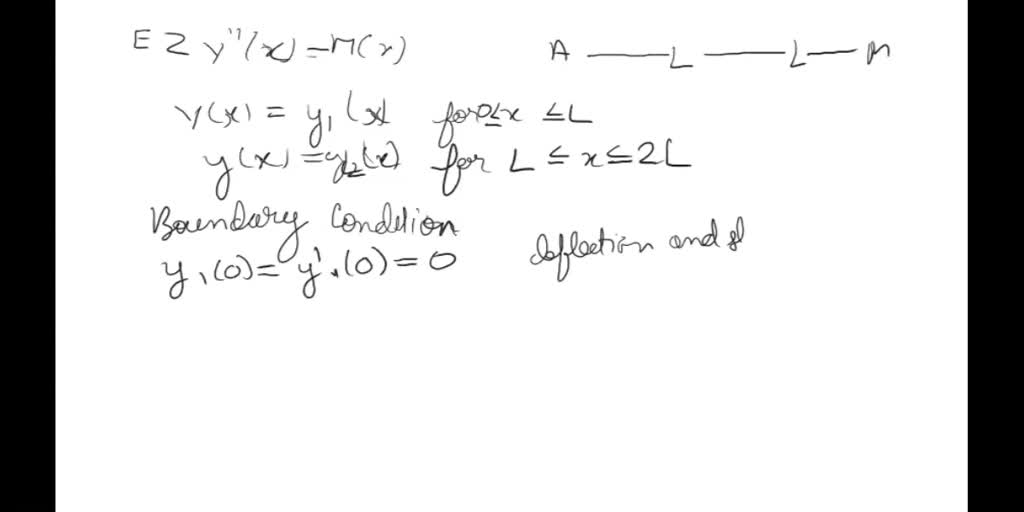 E Z y''(x) = M(x)
A — L — L — M
y(x) = y₁(x) for 0≤x ≤L
y(x) = y₂(x) for L ≤ x ≤ 2L
Boundary Condition
y₁(0) = y'₁(0) = 0
deflection and sl